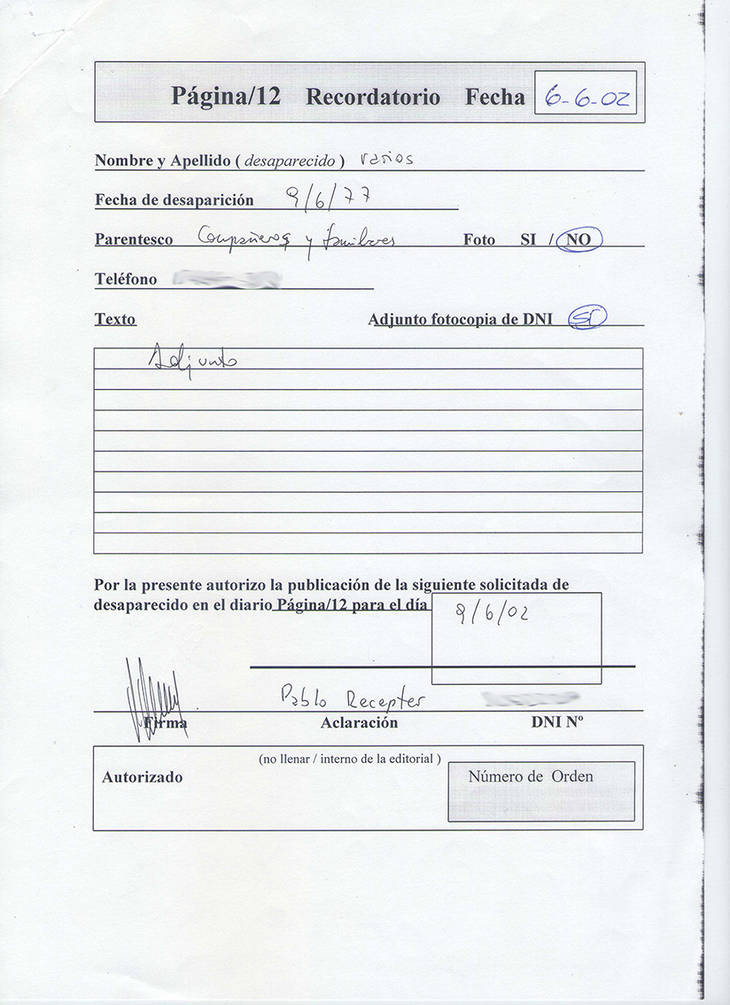 Página/12 Recordatorio Fecha 6-6-02
Nombre y Apellido ( desaparecido ) varios
Fecha de desaparición 9/6/77
Parentesco Compañeros y familiares Foto SI / NO
Teléfono
Texto Adjunto fotocopia de DNI SÍ
Adjunto
Por la presente autorizo la publicación de la siguiente solicitada de
desaparecido en el diario Página/12 para el día 9/6/02
Pablo Recepter
Firma Aclaración DNI Nº
(no llenar / interno de la editorial )
Autorizado Número de Orden